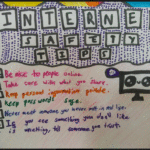 INTERNET
SAFETY
TIPS
Be nice to people online.
Take care with what you share.
Keep personal information private.
Keep passwords safe.
Never meet someone you have met in real life.
If you see something you don't like
is upsetting, tell someone you trust.